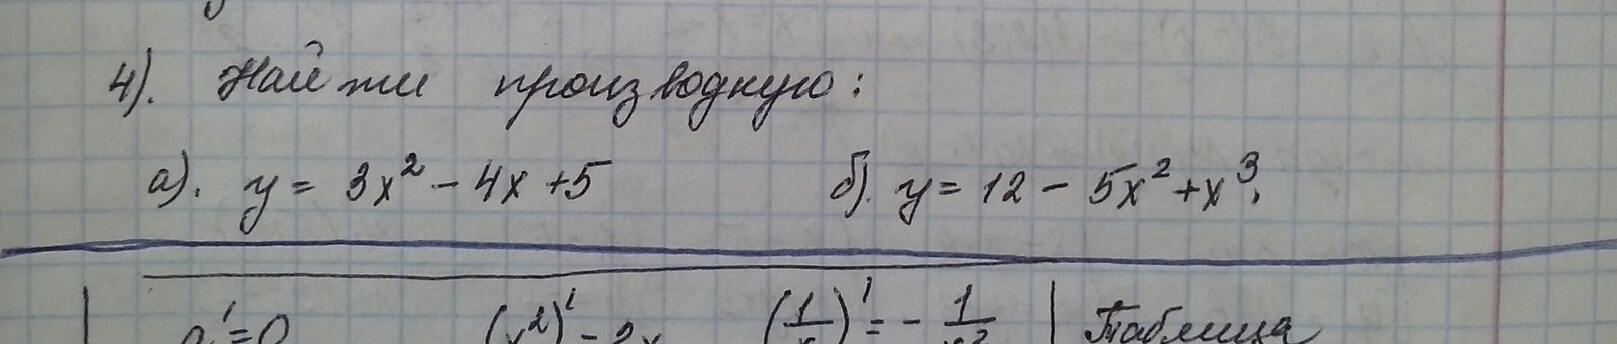 4). Найти производную:
а). y = 3x² - 4x + 5 б). y = 12 - 5x² + x³.
a' = 0 (x²)' = 2x (1/x)' = - 1/x² Таблица